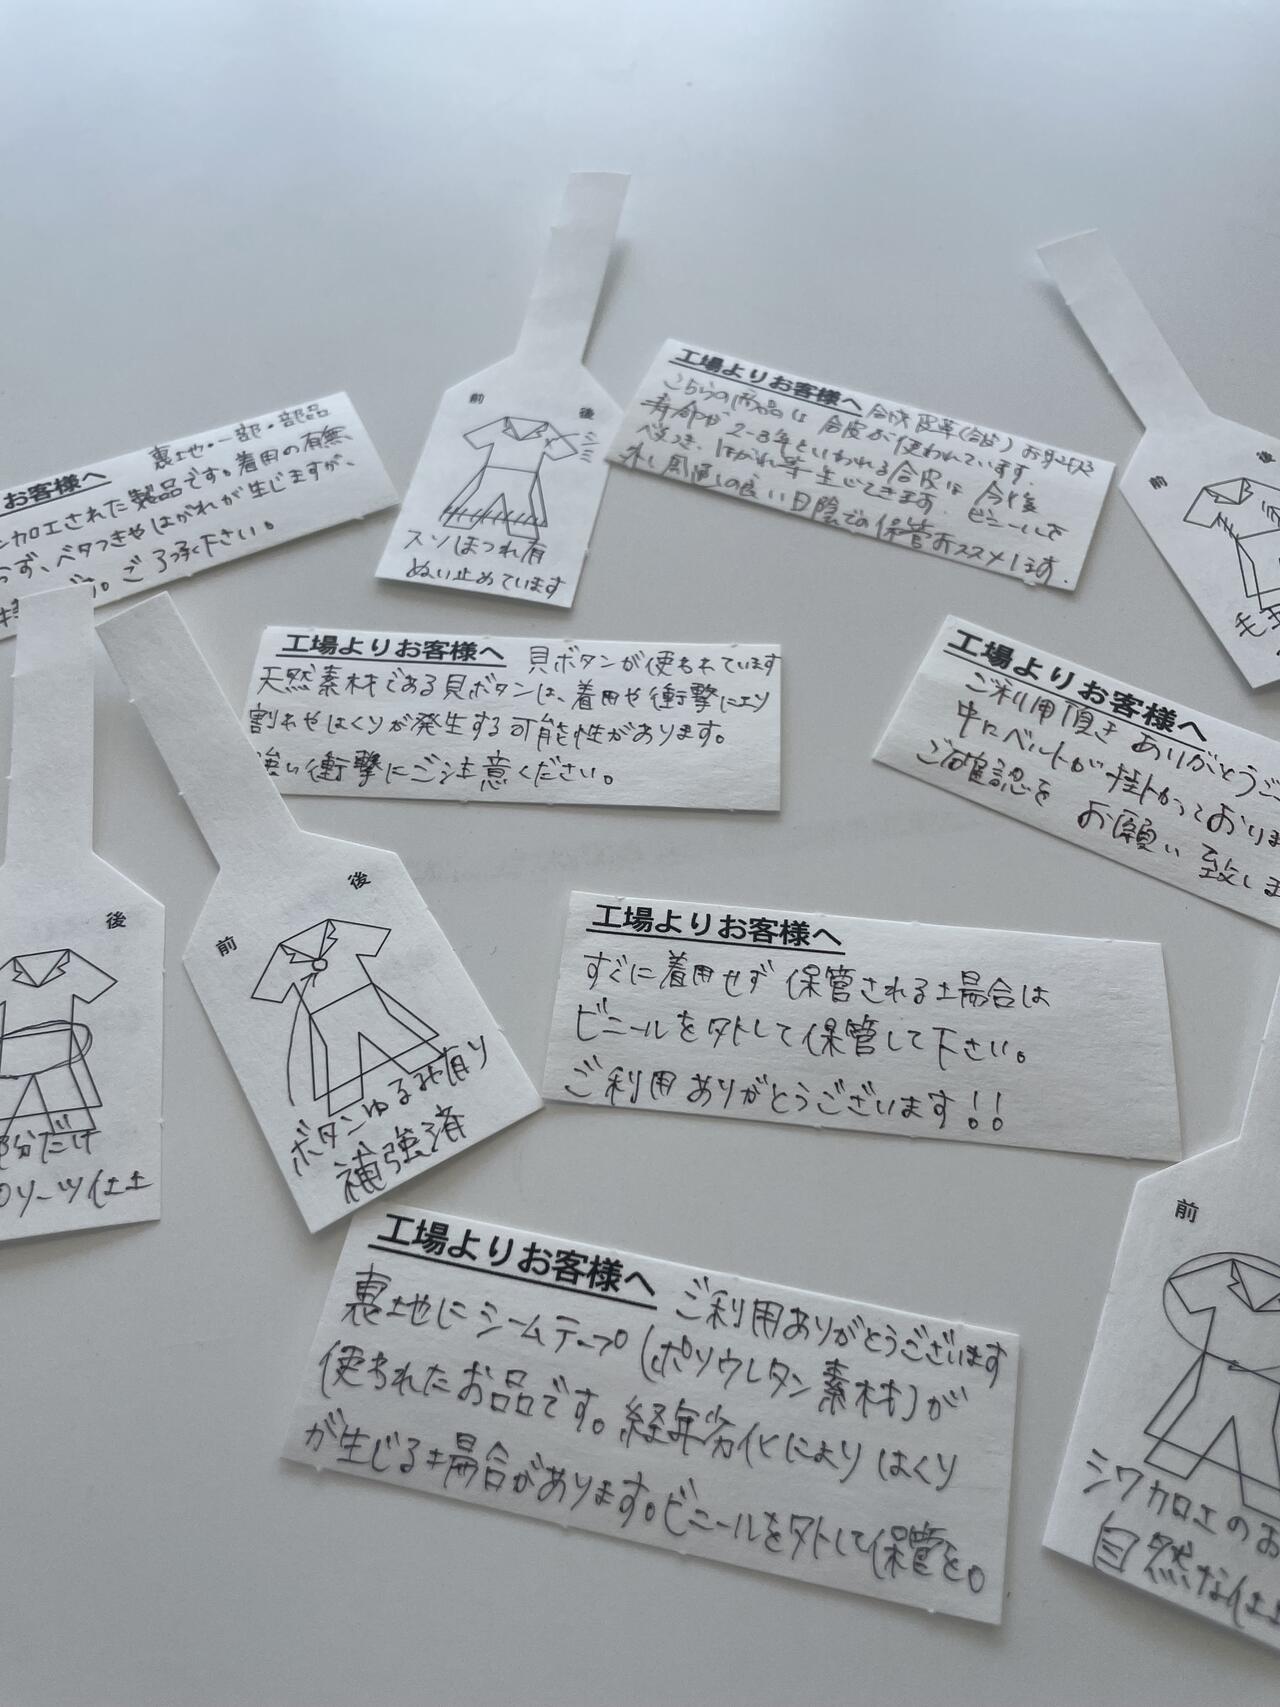 お客様へ 裏地・一部・部品
加工された製品です。着用の有無
らず、ベタつきやはがれが生じますが、
す。ご了承下さい。
前
後
スソほつれ有
ぬい止めています
工場よりお客様へ 合成皮革(合皮)
こちらの商品は 合皮が使われています。
寿命が2-3年といわれる合皮は 今後
べたつき、はがれ等生じてきます。ビニールを
外し風通しの良い日陰での保管おススメします。
前
後
毛
工場よりお客様へ 貝ボタンが使われています
天然素材である貝ボタンは、着用や衝撃により
割れやはくりが発生する可能性があります。
強い衝撃にご注意ください。
工場よりお客様へ
ご利用頂き ありがとうご
中にベルトが掛かっておりま
ご確認を お願い致しま
後
部分だけ
プリーツ仕上
前
後
ボタンゆるみ有り
補強済
工場よりお客様へ
すぐに着用せず 保管される場合は
ビニールを外して保管して下さい。
ご利用ありがとうございます!!
工場よりお客様へ ご利用ありがとうございます
裏地にシームテープ(ポリウレタン素材)が
使われたお品です。経年劣化により はくり
が生じる場合があります。ビニールを外して保管を。
前
シワ加工のお
自然な仕上